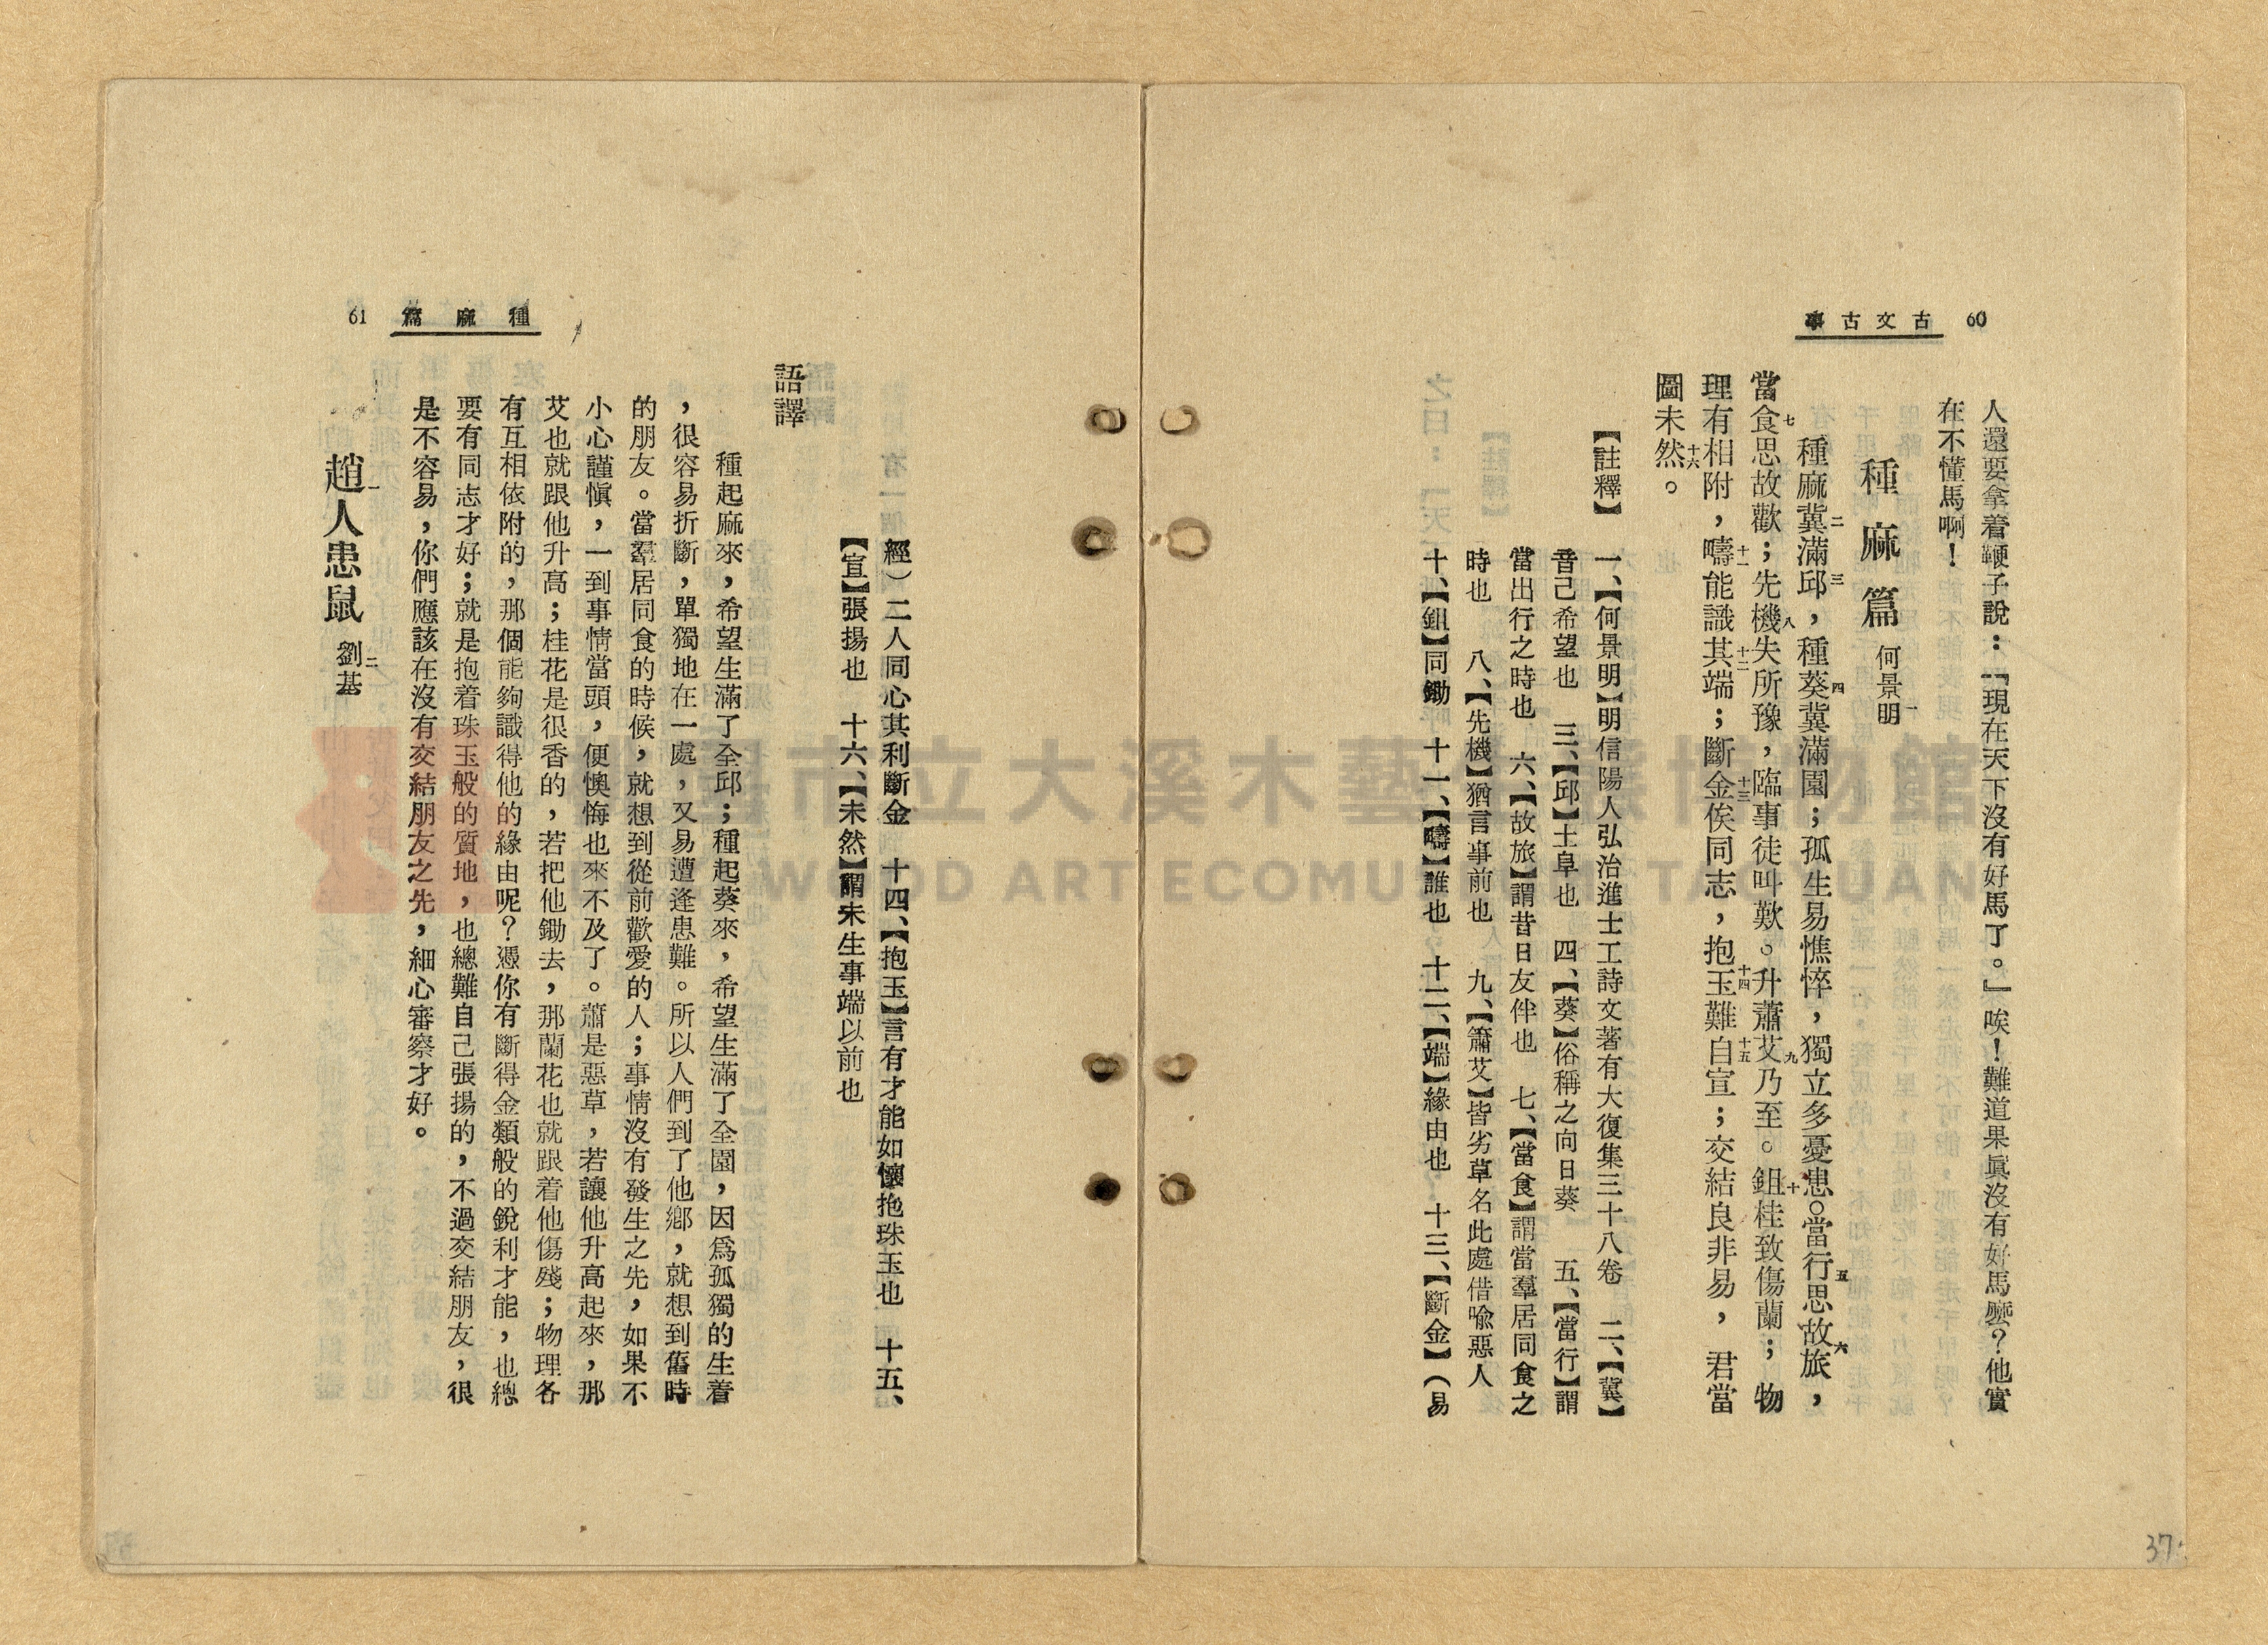 60 古文古事
人還要拿着鞭子說：「現在天下沒有好馬了。」唉！難道果眞沒有好馬麼？他實
在不懂馬啊！
種麻篇 何景明一
種麻冀二滿邱三，種葵四冀滿園；孤生易憔悴，獨立多憂患。當行五思故旅六，
當食七思故歡；先機八失所豫，臨事徒叫歎。升蕭艾九乃至。鉏十桂致傷蘭；物
理有相附，疇十一能識其端十二；斷金十三俟同志，抱玉十四難自宣十五；交結良非易，君當
圖未然十六。
【註釋】
一、【何景明】明信陽人弘治進士工詩文著有大復集三十八卷 二、【冀】
音己希望也 三、【邱】土阜也 四、【葵】俗稱之向日葵 五、【當行】謂
當出行之時也 六、【故旅】謂昔日友伴也 七、【當食】謂當羣居同食之
時也 八、【先機】猶言事前也 九、【簫艾】皆劣草名此處借喩惡人
十、【鉏】同鋤 十一、【疇】誰也 十二、【端】緣由也 十三、【斷金】（易
37
種麻篇 61
經）二人同心其利斷金 十四、【抱玉】言有才能如懷抱珠玉也 十五、
【宣】張揚也 十六、【未然】謂未生事端以前也
語譯
種起麻來，希望生滿了全邱；種起葵來，希望生滿了全園，因爲孤獨的生着
，很容易折斷，單獨地在一處，又易遭逢患難。所以人們到了他鄉，就想到舊時
的朋友。當羣居同食的時候，就想到從前歡愛的人；事情沒有發生之先，如果不
小心謹愼，一到事情當頭，便懊悔也來不及了。蕭是惡草，若讓他升高起來，那
艾也就跟他升高；桂花是很香的，若把他鋤去，那蘭花也就跟着他傷殘；物理各
有互相依附的，那個能夠識得他的緣由呢？憑你有斷得金類般的銳利才能，也總
要有同志才好；就是抱着珠玉般的質地，也總難自己張揚的，不過交結朋友，很
是不容易，你們應該在沒有交結朋友之先，細心審察才好。
趙一人患鼠 劉二基
市立大溪木藝 博物館
WOOD ART ECOMUSEUM TAOYUAN